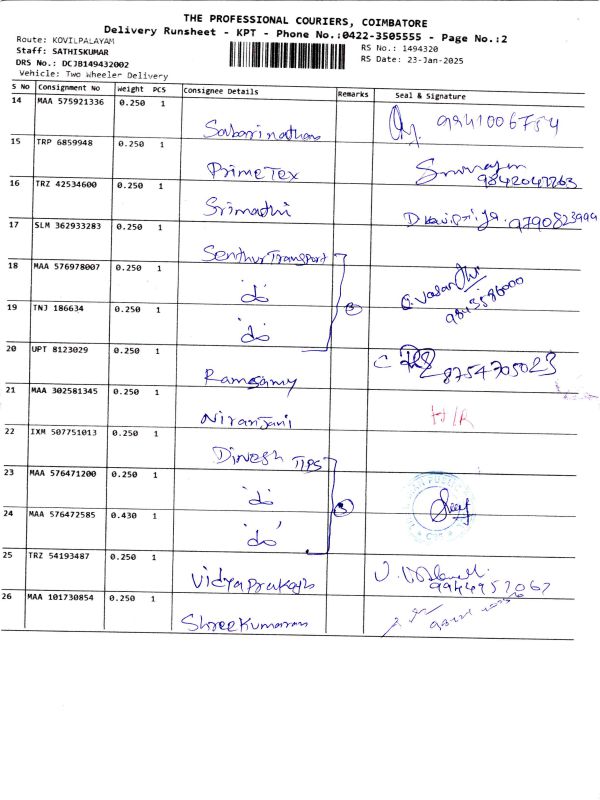 THE PROFESSIONAL COURIERS, COIMBATORE
Delivery Runsheet - KPT - Phone No.:0422-3505555 - Page No.:2
Route: KOVILPALAYAM
RS No.: 1494320
Staff: SATHISKUMAR
RS Date: 23-Jan-2025
DRS No.: DCJB149432002
Vehicle: Two Wheeler Delivery
S No Consignment No Weight PCS Consignee Details Remarks Seal & Signature
14 MAA 575921336 0.250 1
Sabarinathan 9941006754
15 TRP 6859948 0.250 1
Prime Tex 9842047263
16 TRZ 42534600 0.250 1
Srimathi 9790823999
17 SLM 362933283 0.250 1
Senthur Transport
18 MAA 576978007 0.250 1
do 3
19 TNJ 186634 0.250 1
do
20 UPT 8123029 0.250 1
Ramsamy 8754705023
21 MAA 302581345 0.250 1
Niranjani H/R
22 IXM 507751013 0.250 1
Dinesh TIPS
23 MAA 576471200 0.250 1
do 3
24 MAA 576472585 0.430 1
do
25 TRZ 54193487 0.250 1
Vidya Prakash 9944957067
26 MAA 101730854 0.250 1
Shree Kumaran